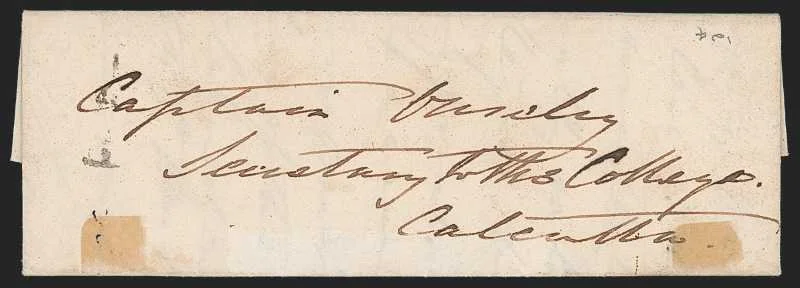 Captain Ouseley
Secretary to the College.
Calcutta